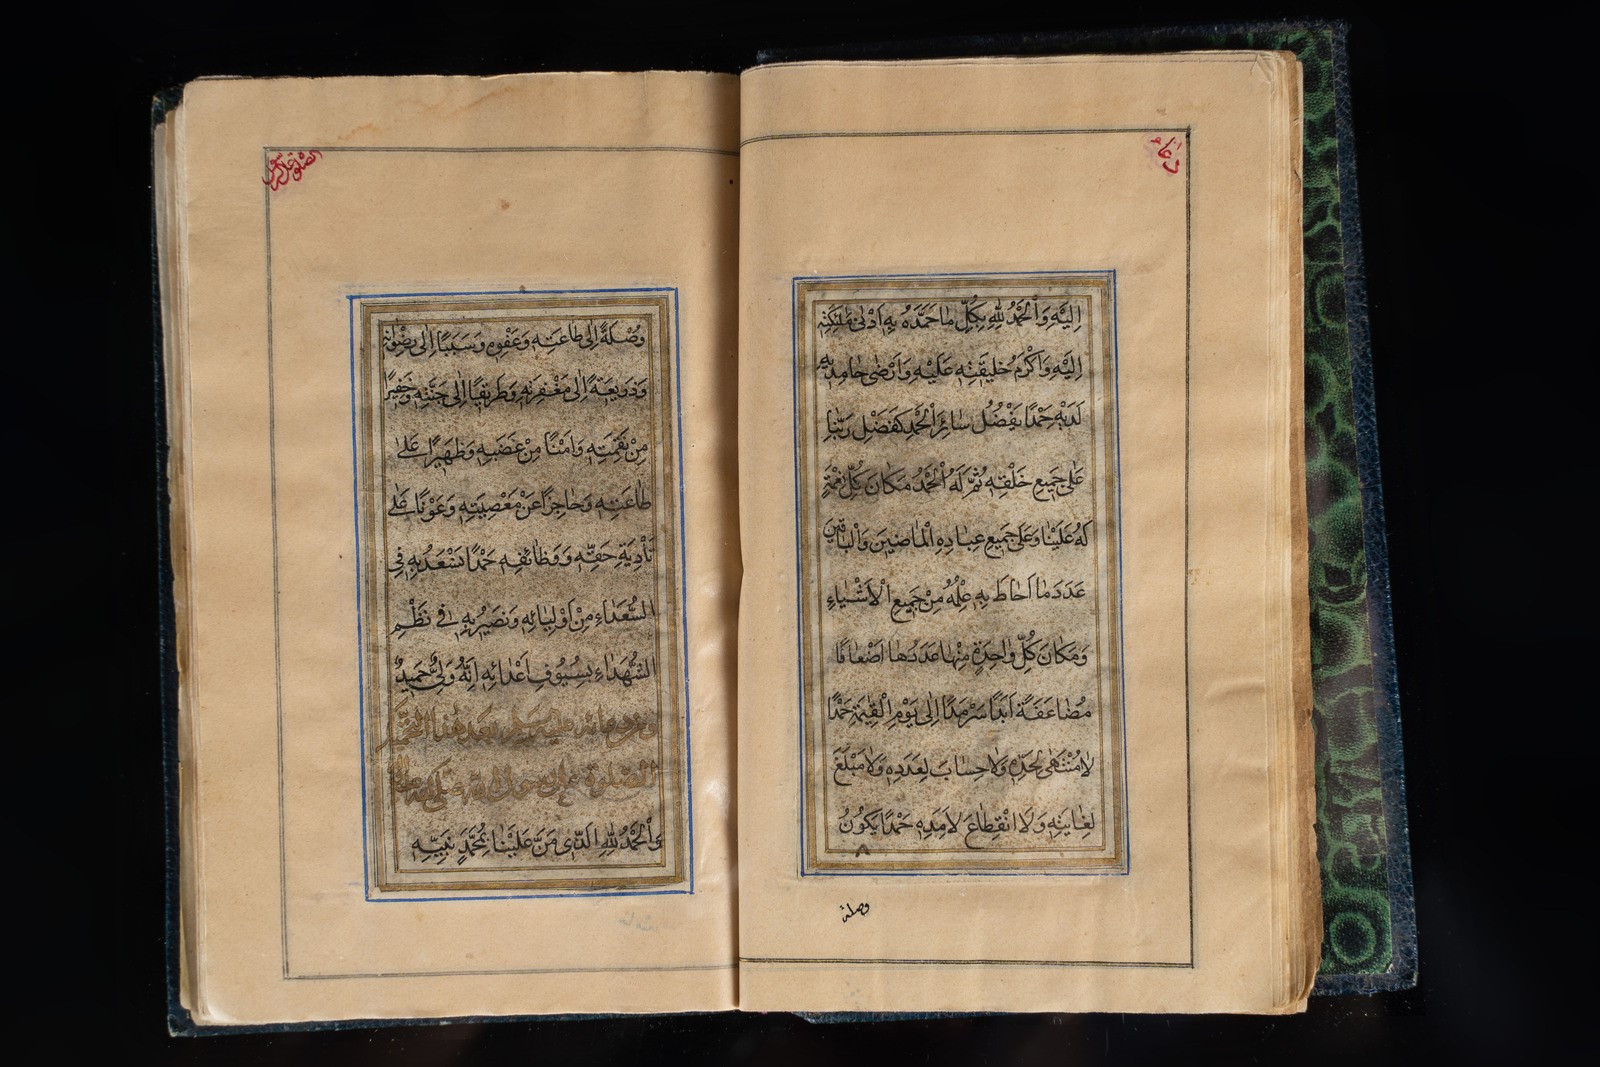 دعاء
اِلَيْهِ وَالْحَمْدُ لِلّٰهِ بِكُلِّ مَا حَمِدَهُ بِهِ اَدْنٰى مَلٰئِكَتِهِ
اِلَيْهِ وَاَكْرَمُ خَلِيقَتِهِ عَلَيْهِ وَاَرْضٰى حَامِدِيهِ
لَدَيْهِ حَمْدًا يَفْضُلُ سَائِرَ الْحَمْدِ كَفَضْلِ رَبِّنَا
عَلٰى جَمِيعِ خَلْقِهِ ثُمَّ لَهُ الْحَمْدُ مَكَانَ كُلِّ نِعْمَةٍ
لَهُ عَلَيْنَا وَعَلٰى جَمِيعِ عِبَادِهِ الْمَاضِينَ وَالْبَاقِينَ
عَدَدَ مَا اَحَاطَ بِهِ عِلْمُهُ مِنْ جَمِيعِ الْاَشْيَاءِ
وَمَكَانَ كُلِّ وَاحِدَةٍ مِنْهَا عَدَدُهَا اَضْعَافًا
مُضَاعَفَةً اَبَدًا سَرْمَدًا اِلٰى يَوْمِ الْقِيٰمَةِ حَمْدًا
لَا مُنْتَهٰى لِحَدِّهِ وَلَا حِسَابَ لِعَدَدِهِ وَلَا مَبْلَغَ
لِغَايَتِهِ وَلَا انْقِطَاعَ لِاَمَدِهِ حَمْدًا يَكُونُ
وصلة
الصلوة على الرسول
وُصْلَةً اِلٰى طَاعَتِهِ وَعَفْوِهِ وَسَبَبًا اِلٰى رِضْوَانِهِ
وَذَرِيعَةً اِلٰى مَغْفِرَتِهِ وَطَرِيقًا اِلٰى جَنَّتِهِ وَخَفِيرًا
مِنْ نَقِمَتِهِ وَاَمْنًا مِنْ غَضَبِهِ وَظَهِيرًا عَلٰى
طَاعَتِهِ وَحَاجِزًا عَنْ مَعْصِيَتِهِ وَعَوْنًا عَلٰى
تَأْدِيَةِ حَقِّهِ وَوَظَائِفِهِ حَمْدًا نَسْعَدُ بِهِ فِى
السُّعَدَاءِ مِنْ اَوْلِيَائِهِ وَنَصِيرُ بِهِ فِى نَظْمِ
الشُّهَدَاءِ بِسُيُوفِ اَعْدَائِهِ اِنَّهُ وَلِىٌّ حَمِيدٌ
وَمِنْ دُعَائِهِ عَلَيْهِ السَّلَامُ بَعْدَ هٰذَا التَّحْمِيدِ
الصَّلٰوةُ عَلٰى رَسُولِ اللّٰهِ صَلَّى اللّٰهُ عَلَيْهِ وَاٰلِهِ
وَالْحَمْدُ لِلّٰهِ الَّذِى مَنَّ عَلَيْنَا بِمُحَمَّدٍ نَبِيِّهِ